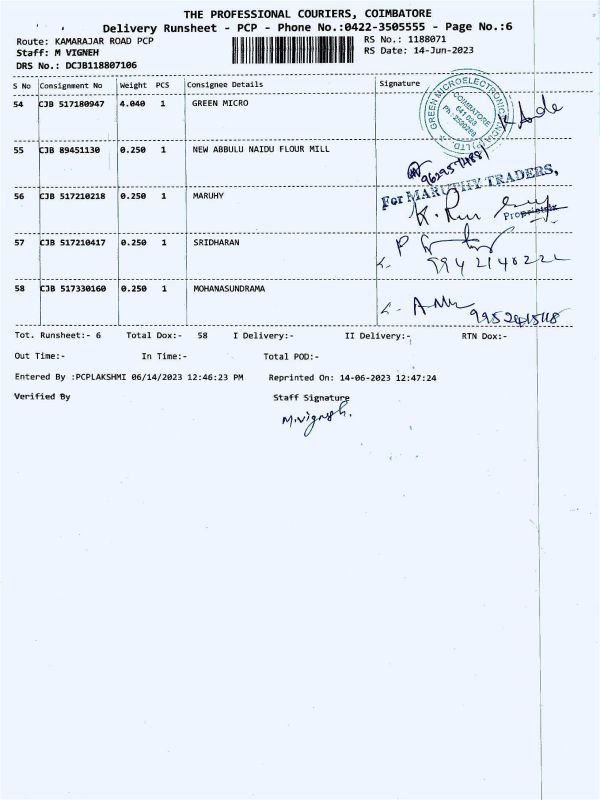 THE PROFESSIONAL COURIERS, COIMBATORE
Delivery Runsheet - PCP - Phone No.:0422-3505555 - Page No.:6
Route: KAMARAJAR ROAD PCP
RS No.: 1188071
Staff: M VIGNEH
RS Date: 14-Jun-2023
DRS No.: DCJB118807106
S No Consignment No Weight PCS Consignee Details Signature
54 CJB 517180947 4.040 1 GREEN MICRO
GREEN MICROELECTRONICS
COIMBATORE
55 CJB 89451130 0.250 1 NEW ABBULU NAIDU FLOUR MILL
For MARUTHY TRADERS,
56 CJB 517210218 0.250 1 MARUHY
Proprietrix
57 CJB 517210417 0.250 1 SRIDHARAN
58 CJB 517330160 0.250 1 MOHANASUNDRAMA
Tot. Runsheet:- 6 Total Dox:- 58 I Delivery:- II Delivery:- RTN Dox:-
Out Time:- In Time:- Total POD:-
Entered By :PCPLAKSHMI 06/14/2023 12:46:23 PM Reprinted On: 14-06-2023 12:47:24
Verified By Staff Signature
M.Vignesh.